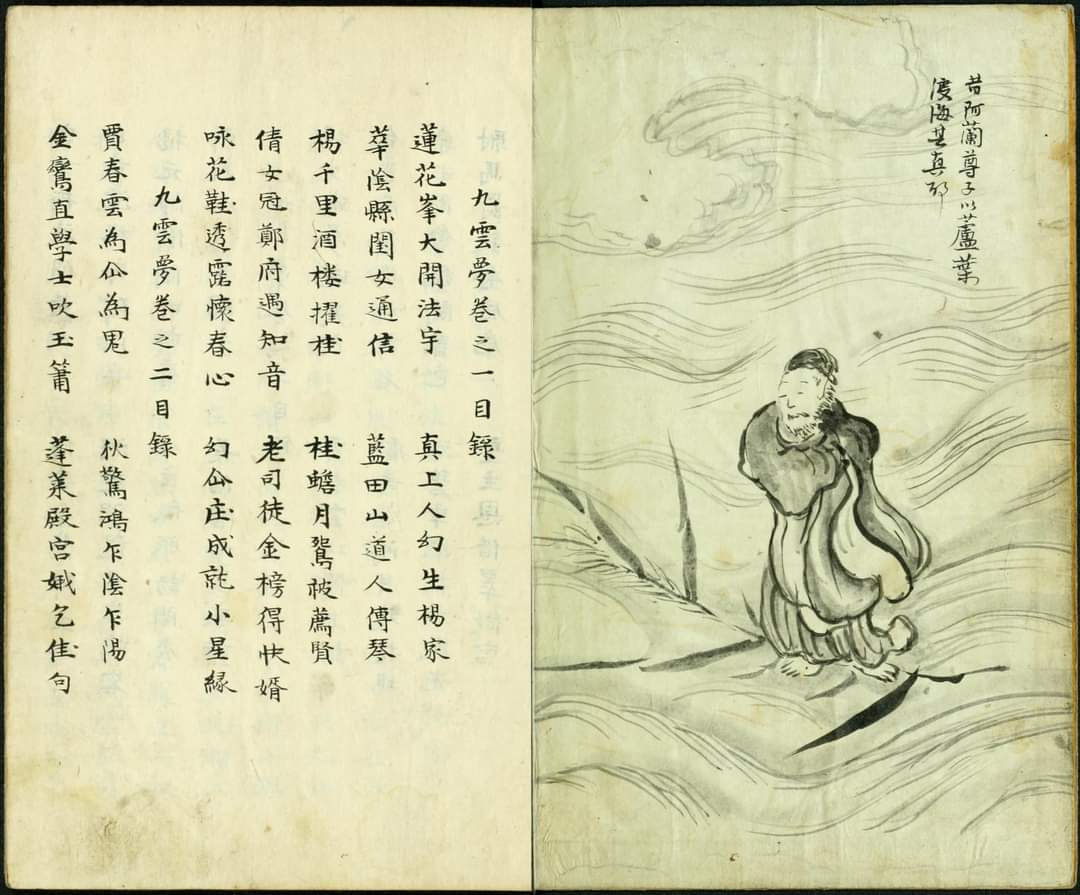 昔阿蘭尊子以蘆葉
渡海其真耶
九雲夢卷之一目錄
蓮花峯大開法宇 真上人幻生楊家
華陰縣閨女通信 藍田山道人傳琴
楊千里酒楼擢桂 桂蟾月鴛被薦賢
倩女冠鄭府遇知音 老司徒金榜得快婿
咏花鞋透露懷春心 幻仚庄成就小星緣
九雲夢卷之二目錄
賈春雲為仚為鬼 狄驚鴻乍陰乍陽
金鸞直學士吹玉簫 蓬萊殿宮娥乞佳句